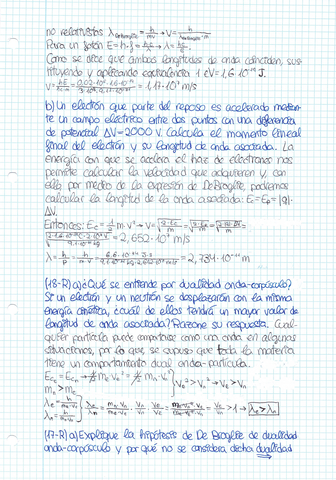 no relativistas λ_DeBroglie = h/mv → v = h/λ_DeBroglie·m
Para un fotón E = h·f = hc/λ → λ = hc/E.
Como se dice que ambas longitudes de onda coinciden, sus-
tituyendo y aplicando equivalencia 1 eV = 1,6·10⁻¹⁹ J.
= 1,17·10³ m/s
b) Un electrón que parte del reposo es acelerado median-
te un campo eléctrico entre dos puntos con una diferencia
de potencial ΔV = 2000 V. Calcula el momento lineal
final del electrón y su longitud de onda asociada. La
energía con que se acelera el haz de electrones nos
permite calcular la velocidad que adquieren y, con
ella por medio de la expresión de DeBroglie, podremos
calcular la longitud de la onda asociada: Ec = Ep = |q|·
ΔV.
Entonces: Ec = 1/2 m·v² → v = √(2·Ec/m) =
= 2,652·10⁷ m/s
λ = h/p = h/m·v = = 2,734·10⁻¹¹ m
(18-R) a) ¿Qué se entiende por dualidad onda-corpúsculo?
Si un electrón y un neutrón se desplazaran con la misma
energía cinética, ¿cuál de ellos tendrá un mayor valor de
longitud de onda asociada? Razone su respuesta. Cual-
quier partícula puede comportarse como una onda en algunas
situaciones, por lo que se supuso que toda la materia
tiene un comportamiento dual onda-partícula.
Ec_e = Ec_n → 1/2 m_e·v_e² = 1/2 m_n·v_n² } v_e² > v_n² → v_e > v_n
m_n > m_e
λ_e = h/m_e·v_e } λ_e/λ_n = m_n·v_n/m_e·v_e = > 1 → λ_e > λ_n
λ_n = h/m_n·v_n
(17-R) a) Explique la hipótesis de De Broglie de dualidad
onda-corpúsculo y por qué no se considera dicha dualidad